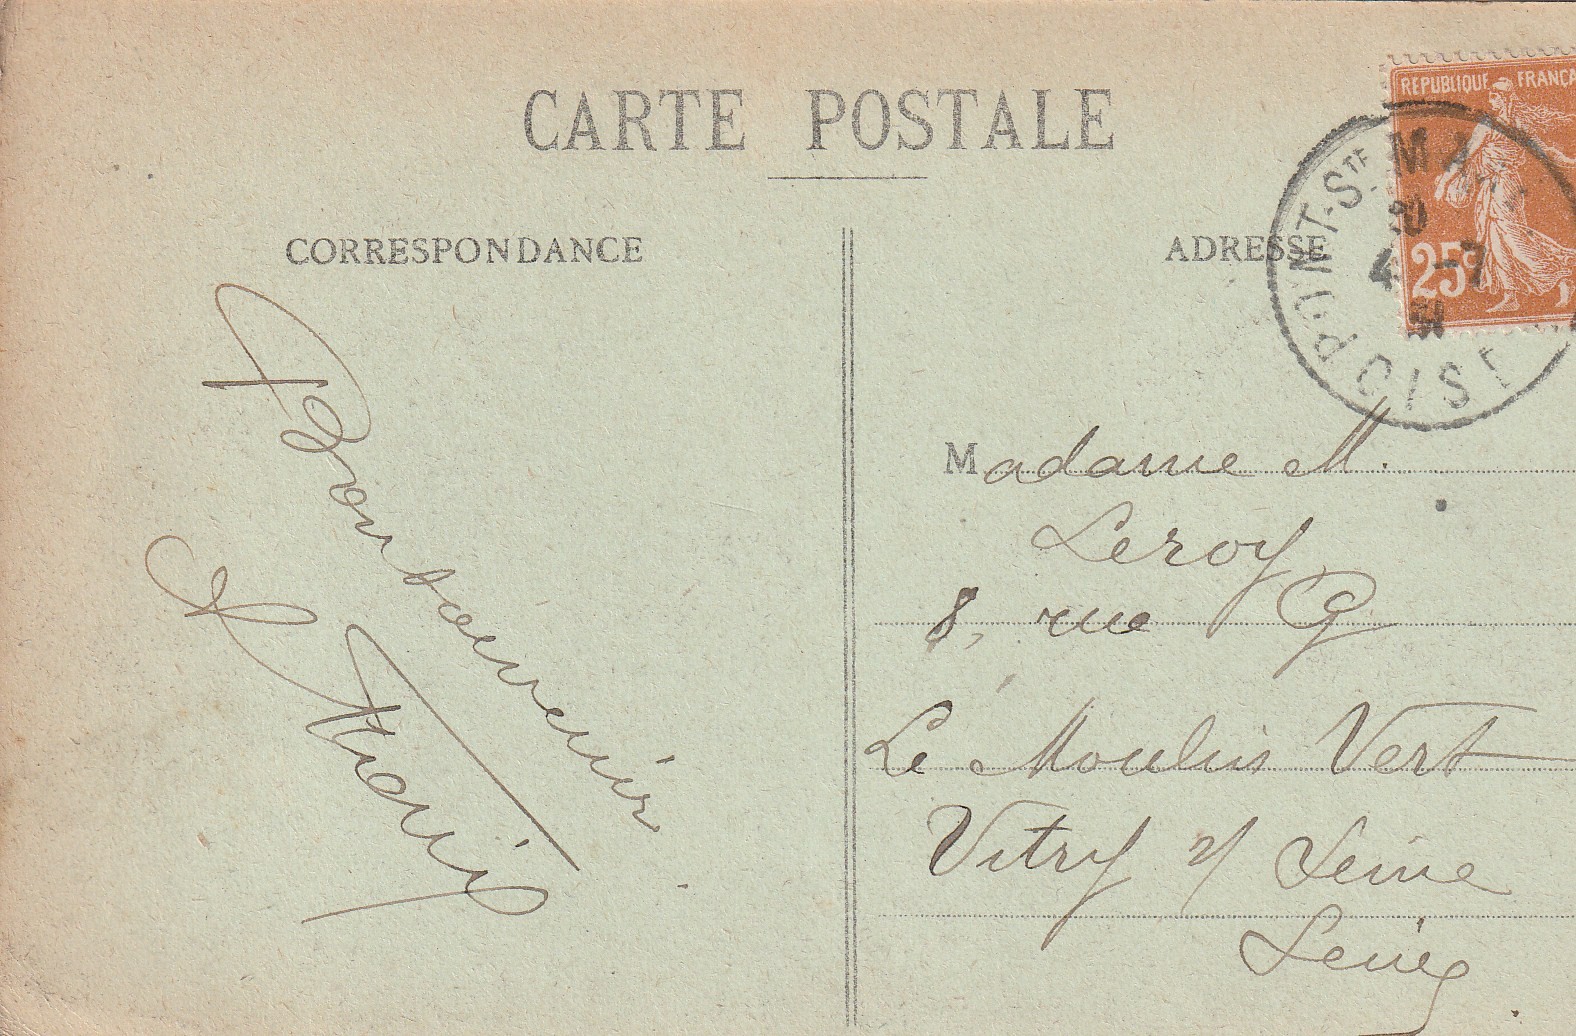 CARTE POSTALE
CORRESPONDANCE
ADRESSE
REPUBLIQUE FRANÇA
25c
PONT-STE-MA
OISE
4 -7
31
Bon souvenir
Madame M.
Leroy
8, rue G
Le Moulin Vert
Vitry s/ Seine
Seine